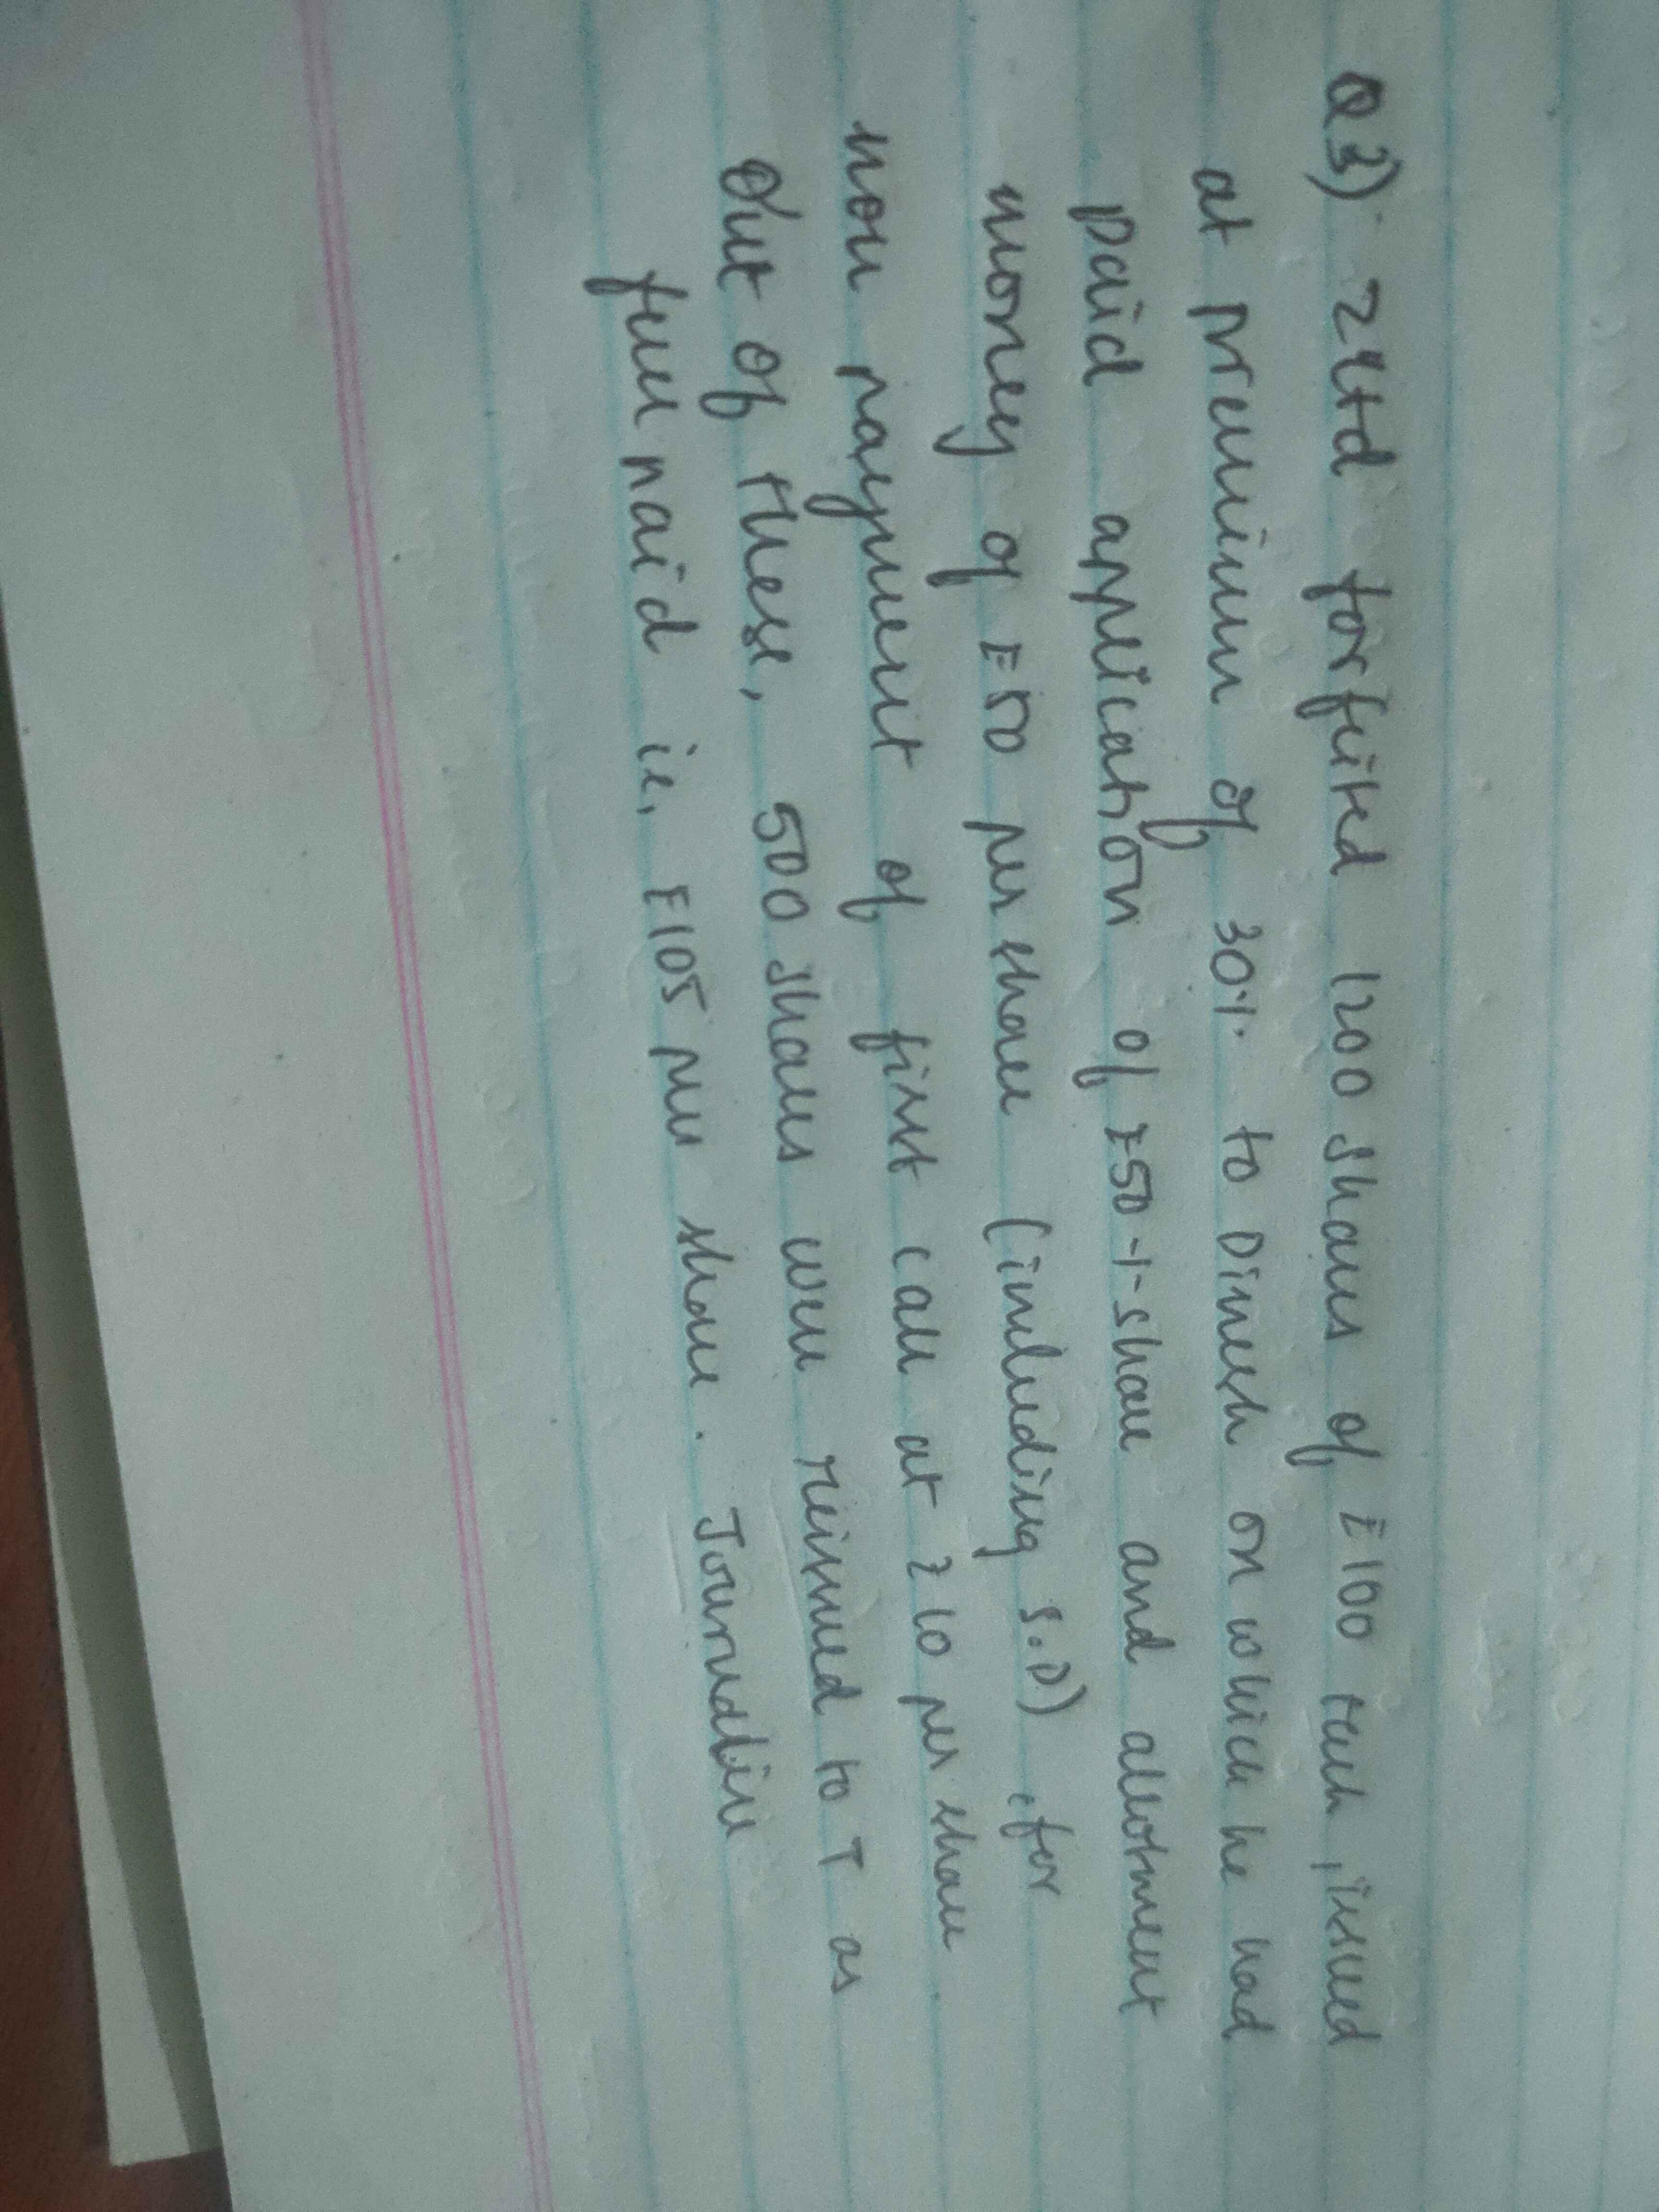 Q3) Z Ltd forfeited 1200 shares of ₹100 each, issued
at premium of 30%. to Dinesh on which he had
paid application of ₹50 -/- share and allotment
money of ₹50 per share (including S.P), for
non payment of first call at ₹10 per share.
Out of these, 500 shares were reissued to T as
full paid ie, ₹105 per share. Journalise